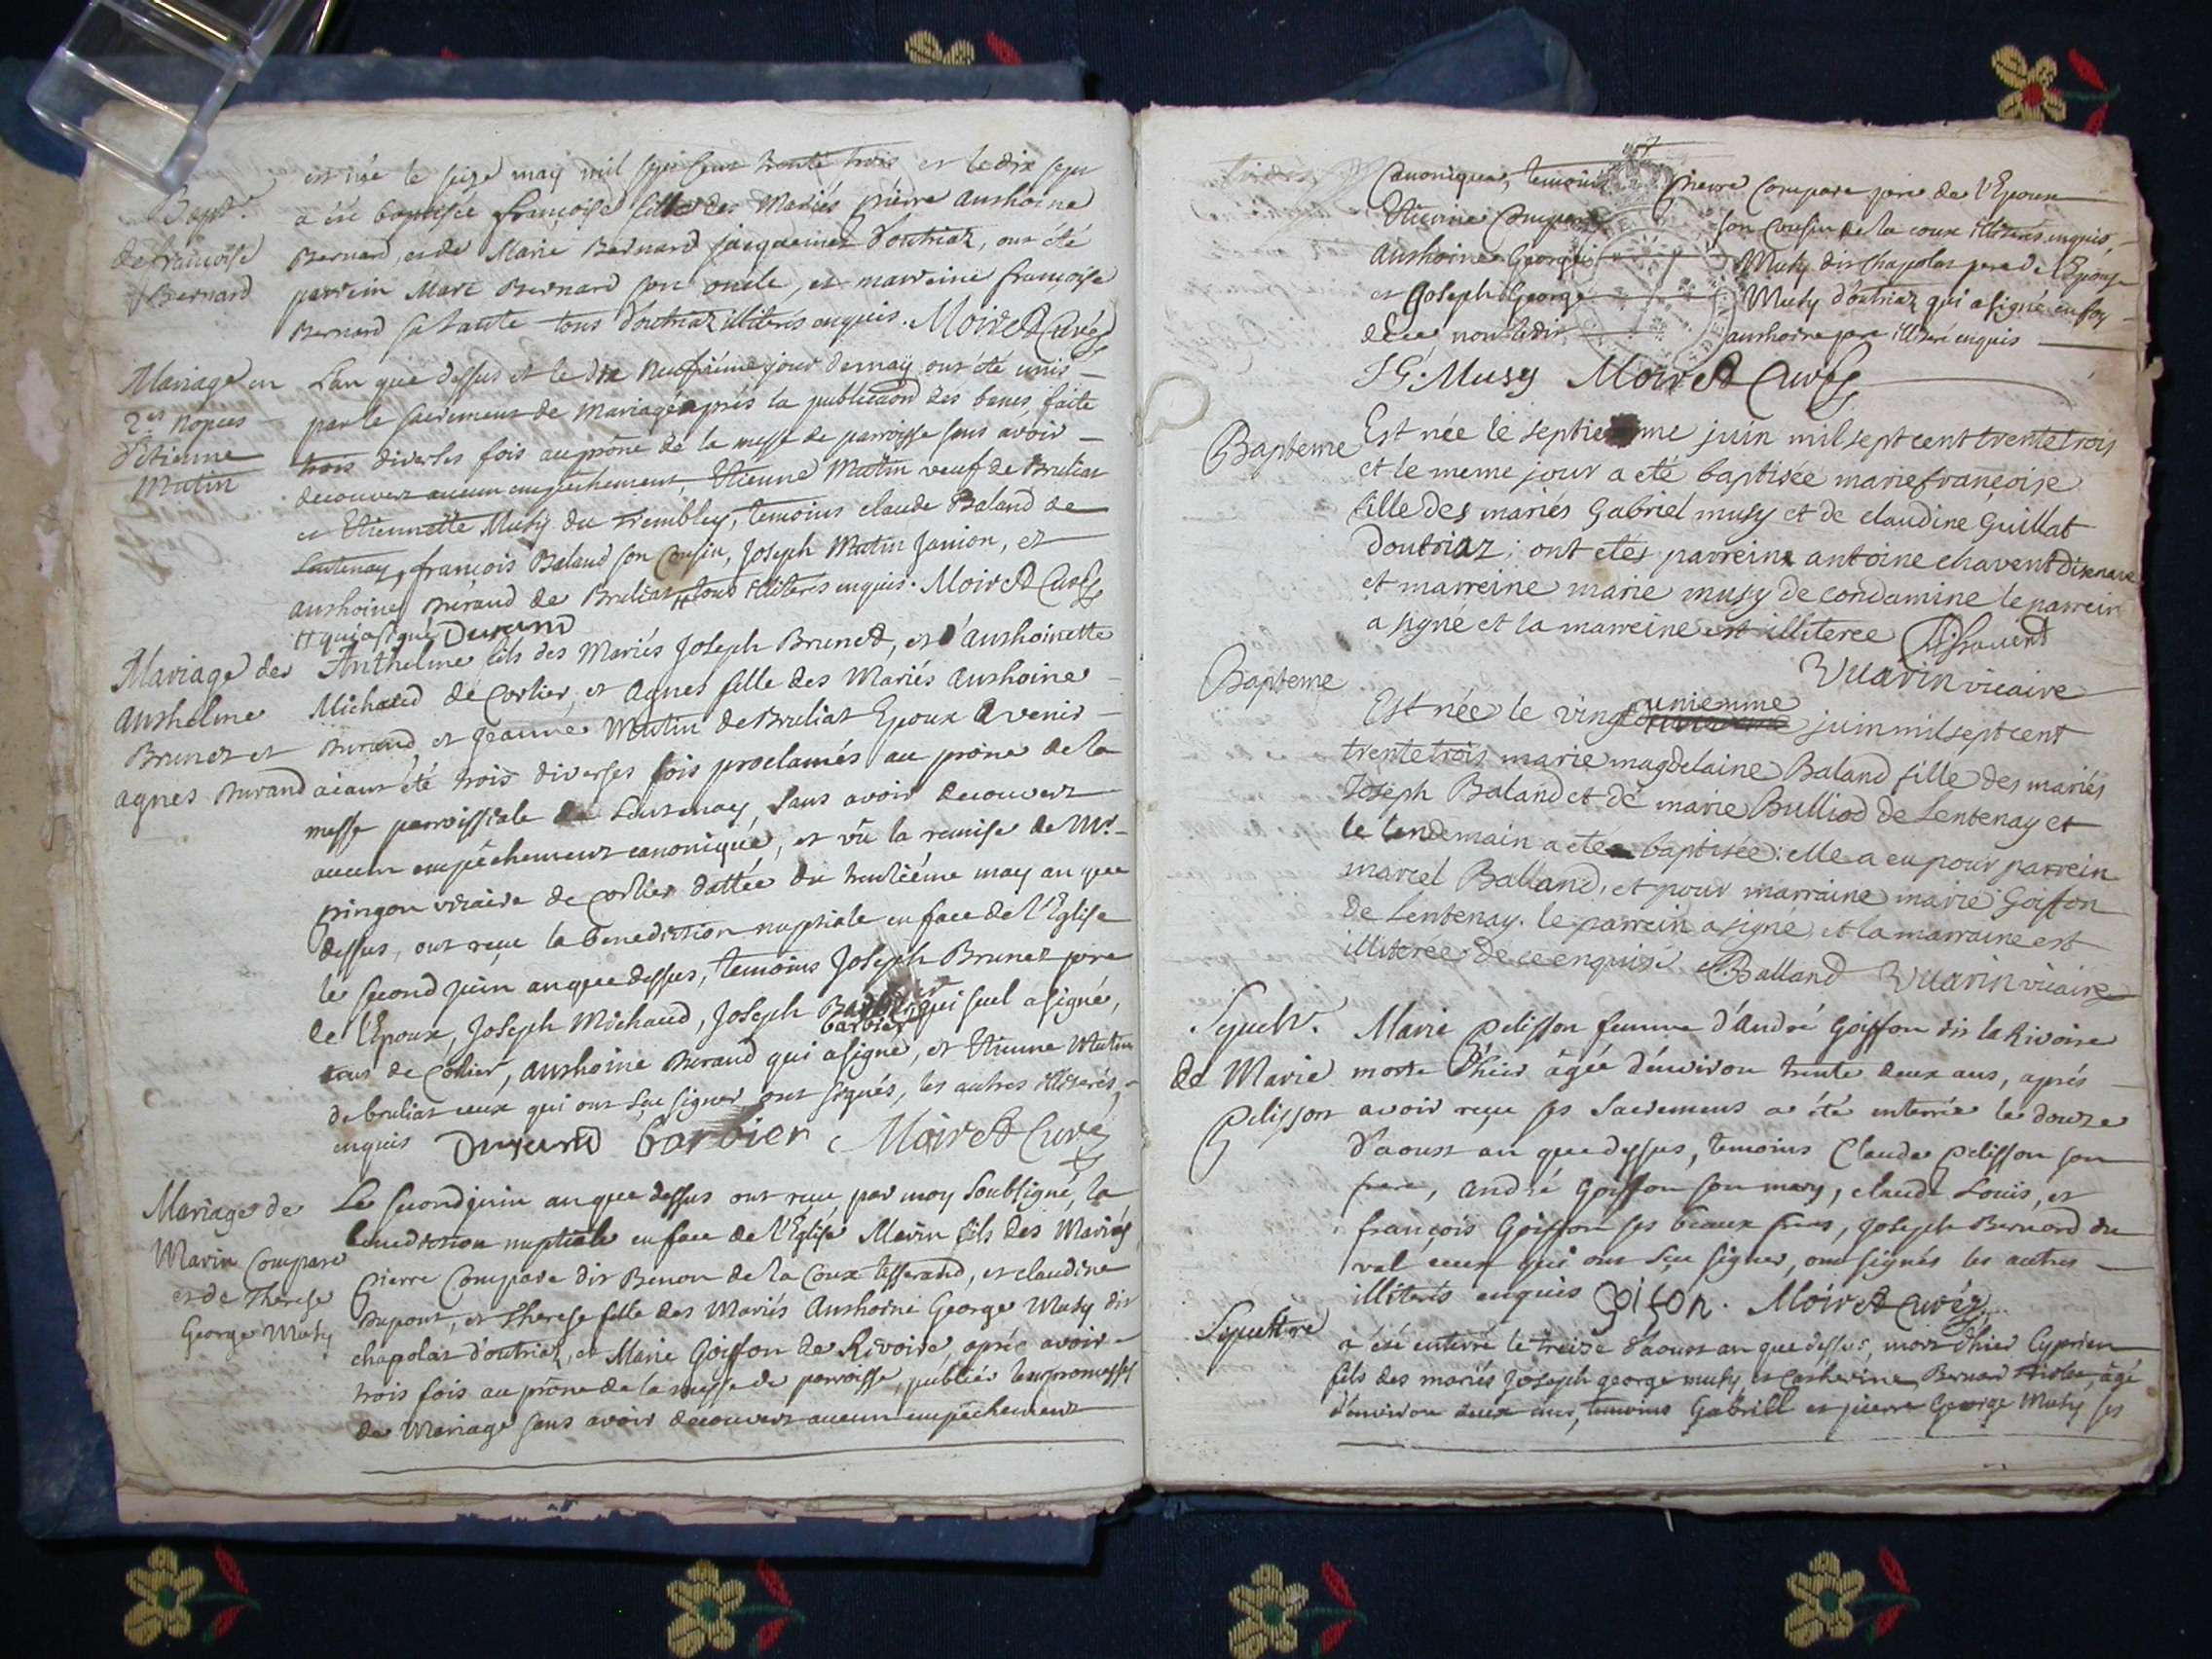 Bapt.
de françoise
Bernard
est née le seize may mil sept cent trente trois, et le dix sept
a été baptisée françoise fille des Mariés pierre Anthoine
Bernard, et de Marie Bernard jacquemet d'outriaz, ont été
parrein Marc Bernard son oncle, et marreine françoise
Bernard sa tante tous d'outriaz illiterés enquis. Moiret Curé
Mariage en
2es nopces
d'Etienne
Mutin
L'an que dessus et le dix neufiéme jour de may ont été unis
par le sacrement de Mariage aprés la publication des bancs faite
trois diverses fois au prône de la messe de parroisse sans avoir
decouvert aucun empêchement, Etienne Mutin veuf de Bruliat
et Etiennette Musy du Tremblay, temoins claude Baland de
Lentenay, françois Baland son Cousin, Joseph Mutin Janion, et
anthoine Durand de Bruliat # tous illiterés enquis. Moiret Curé
# qui a signé Durand
Mariage de
Anthelme
Brunet et
agnes Durand
Anthelme fils des Mariés Joseph Brunet, et d'Anthoinette
Michaud de Corlier, et Agnes fille des Mariés Anthoine
Durand et Jeanne Mutin de Bruliat Epoux avenir
aiant été trois diverses fois proclamés au prône de la
messe parroissiale de Lentenay, sans avoir decouvert
aucun empêchement canonique, et vû la remise de Mr.
pingon vicaire de Corlier dattée du trentiéme may an que
dessus, ont reçue la benediction nuptiale en face de l'Eglise
le second juin an que dessus, temoins Joseph Brunet pere
de l'Epoux, Joseph Michaud, Joseph barbier qui seul a signé,
tous de Corlier, anthoine Durand qui a signé, et Etienne Mutin
de bruliat ceux qui ont sçu signer ont signés, les autres illiterés
enquis Durand barbier Moiret Curé
Mariage de
Marin Compare
et de Therese
George Musy
Le second juin an que dessus ont reçu par moy soubsigné, la
benediction nuptiale en face de l'Eglise Marin fils des Mariés
Pierre Compare dit Benon de la Coux tisserand, et claudine
Dupont, et Therese fille des Mariés Anthoine George Musy dit
chapolat d'outriaz, et Marie Goiffon de Rivoire, aprés avoir
trois fois au prône de la messe de parroisse, publiés les promesses
de Mariage sans avoir decouvert aucun empêchement
Canonique, temoins Pierre Compare pere de l'Epoux
Etienne Compare son Cousin de la coux illiterés enquis,
Anthoine George Musy dit chapolat pere de l'Epouse
et Joseph George Musy d'outriaz qui a signé en foy
anthoine pere illiteré enquis
J G. Musy Moiret Curé
Bapteme
Est née le septieme juin mil sept cent trente trois
et le meme jour a eté baptisée marie françoise
fille des mariés Gabriel musy et de claudine Guillat
doutriaz; ont etés parrein antoine chavent disenave
et marreine marie musy de condamine le parrein
a signé et la marreine est illiteree Chavent
Vuarin vicaire
Bapteme
Est née le vingt unieme juin mil sept cent
trente trois marie magdelaine Baland fille des mariés
Joseph Baland et de marie Bulliod de Lentenay et
le lendemain a eté baptisée: elle a eu pour parrein
marcel Balland, et pour marraine marie Goiffon
de Lentenay. le parrein a signé et la marraine est
illiteree de ce enquise Balland Vuarin vicaire
Sepult.
de Marie
Pelisson
Marie Pelisson femme d'André Goiffon dit la Rivoire
morte d'hier âgée d'environ trente deux ans, aprés
avoir reçu ses sacremens a été enterrée le douze
d'aoust an que dessus, temoins Claude Pelisson son
frere, andré Goiffon son mary, claude Louis, et
françois Goiffon ses beaux freres, Joseph Bernard du
val ceux qui ont sçu signer, ont signés les autres
illiterés enquis Goifon. Moiret curé
Sepulture
a été enterré le treize d'aoust an que dessus, mort d'hier Cyprien
fils des mariés Joseph george musy et Catherine Bernard, âgé
d'environ deux ans, temoins Gabriel et pierre George Musy ses